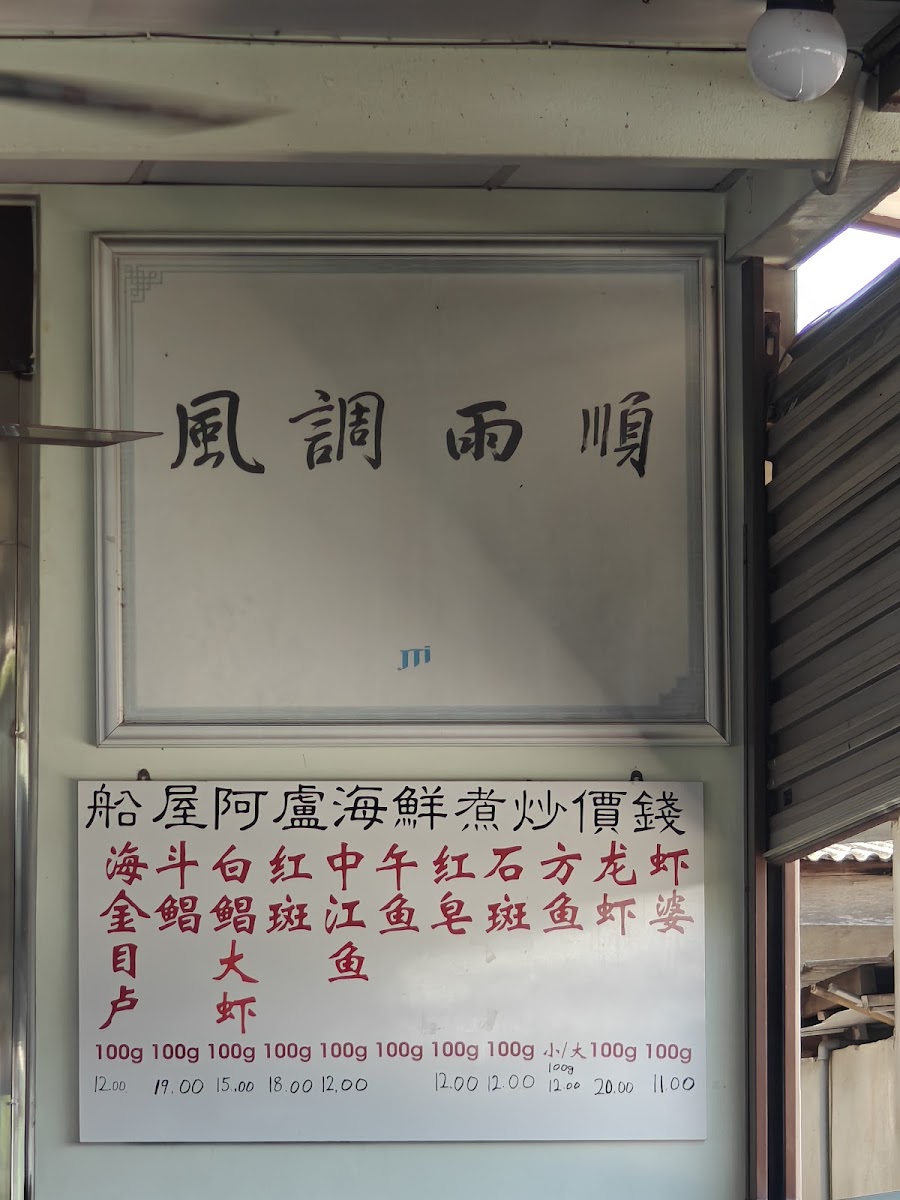 風調雨順
JTi
船屋阿盧海鮮煮炒價錢
海金目卢 斗鲳 白鲳大虾 红斑 中江鱼 午鱼 红皂 石斑 方鱼 龙虾 虾婆
100g 100g 100g 100g 100g 100g 100g 100g 小/大 100g 100g
100g
12.00 19.00 15.00 18.00 12.00 12.00 12.00 12.00 20.00 11.00